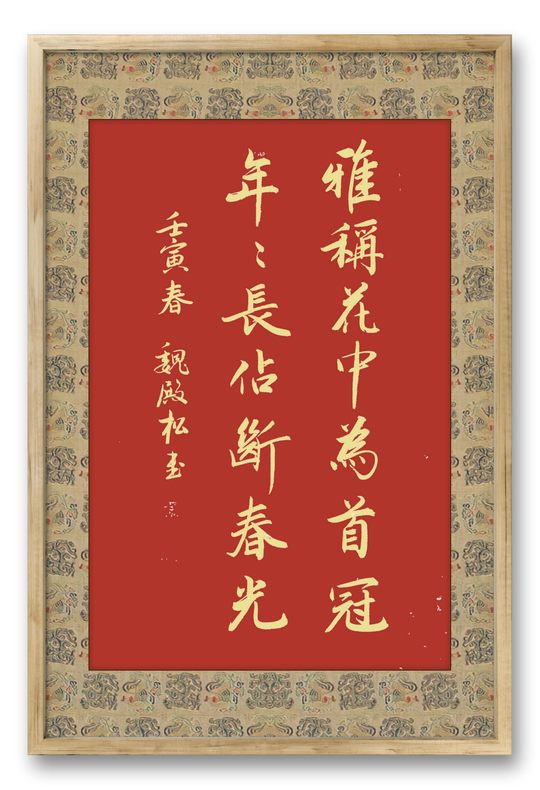 雅稱花中為首冠
年〻長佔斷春光
壬寅春 魏殿松书